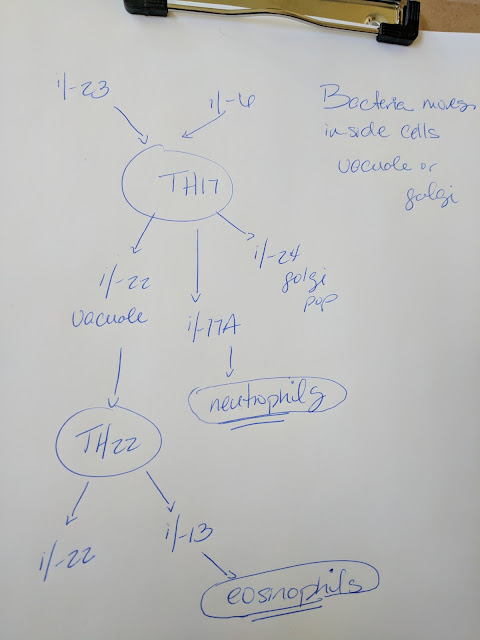 il-23
il-6
Bacteria moves
inside cells
vacuole or
golgi
TH17
il-22
vacuole
il-17A
il-24
golgi
pop
neutrophils
TH22
il-22
il-13
eosinophils